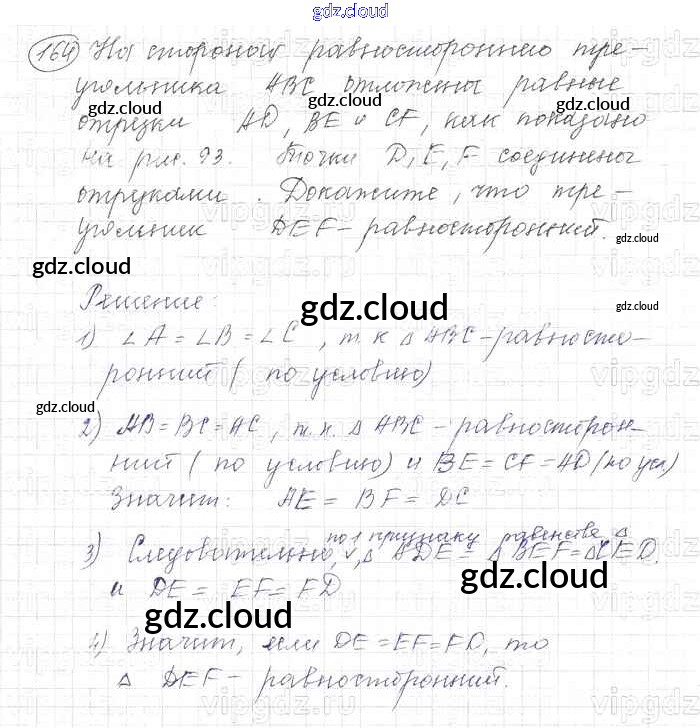 gdz.cloud
164 На сторонах равностороннего тре-
угольника ABC отложены равные
gdz.cloud gdz.cloud gdz.cloud
отрезки AD, BE и CF, как показано
на рис. 93. Точки D, E, F соединены
отрезками. Докажите, что тре-
угольник DEF – равносторонний.
gdz.cloud
gdz.cloud
Решение:
gdz.cloud
gdz.cloud
1) ∠A = ∠B = ∠C, т.к △ABC – равносто-
ронний (по условию)
gdz.cloud
2) AB = BC = AC, т.к. △ABC – равносторон-
ний (по условию) и BE = CF = AD (по усл)
Значит: AE = BF = DC
по 1 признаку равенства △
3) Следовательно, △ADE = △BEF = △CFD.
и DE = EF = FD
gdz.cloud
gdz.cloud
4) Значит, если DE = EF = FD, то
△ DEF – равносторонний.
gdz.cloud
gdz.cloud